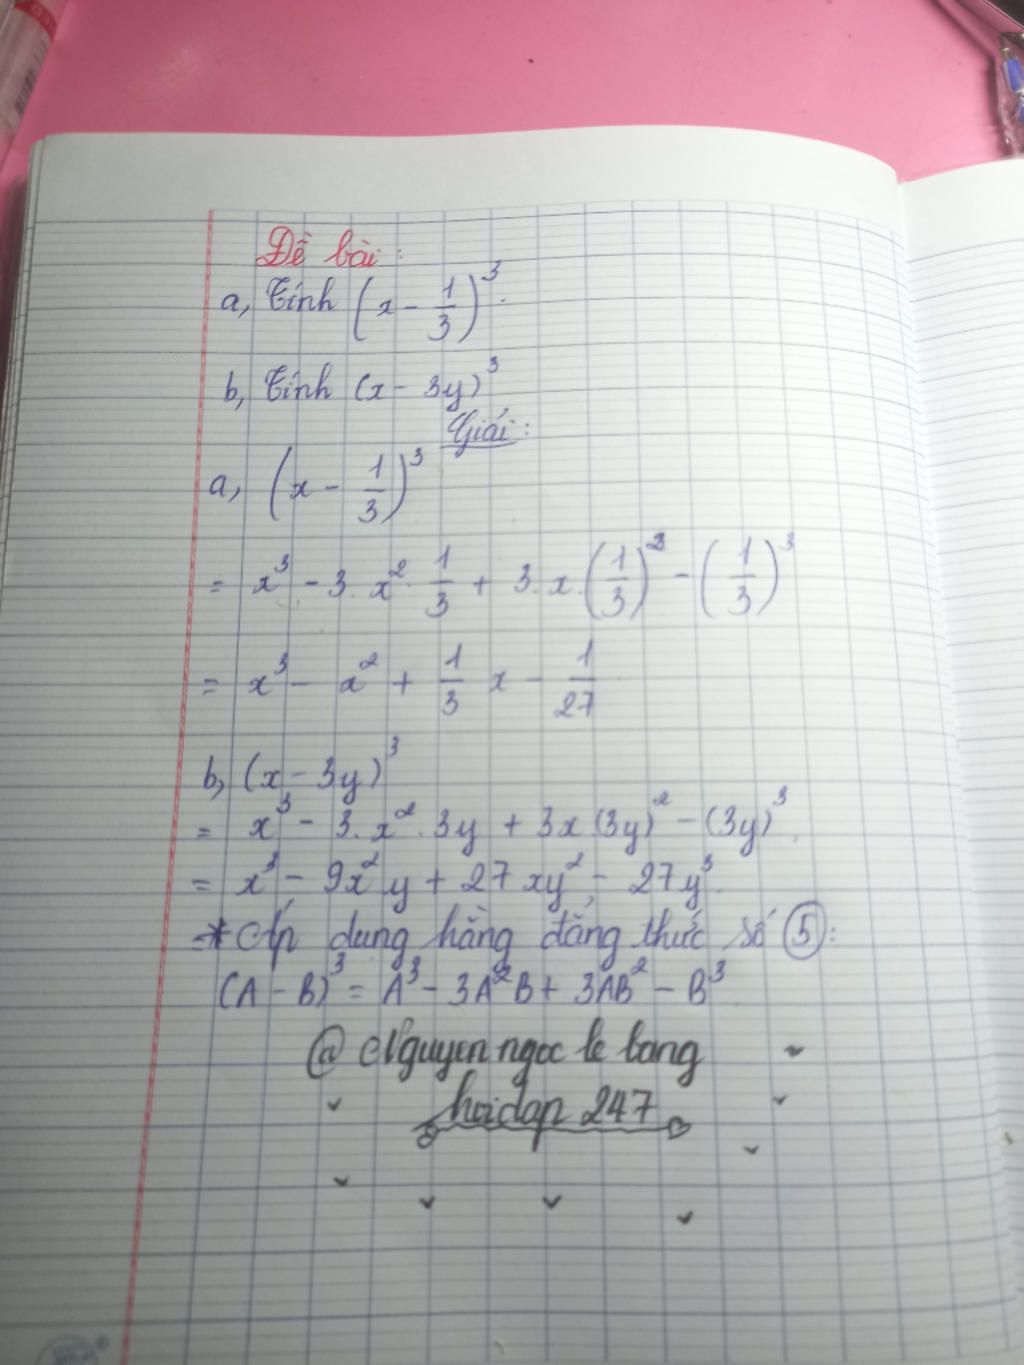 Đề bài:
a, Tính (x - 1/3)³.
b, Tính (x - 3y)³
Giải:
a, (x - 1/3)³
= x³ - 3. x². 1/3 + 3. x. (1/3)² - (1/3)³
= x³ - x² + 1/3 x - 1/27
b, (x - 3y)³
= x³ - 3. x². 3y + 3x (3y)² - (3y)³
= x³ - 9x²y + 27xy² - 27y³.
* Áp dụng hằng đẳng thức số ⑤:
(A - B)³ = A³ - 3A²B + 3AB² - B³
@ Nguyen ngoc le bang
hoidap 247